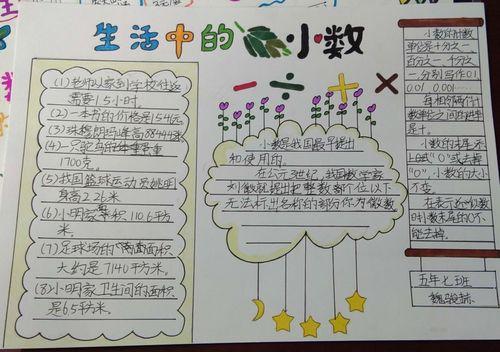 生活中的小数
(1)老师从家到学校往返
需要1.5小时。
(2)一本书的价格是15.4元。
(3)珠穆朗玛峰高8844.4米。
(4)一只鸵鸟的体重重
1700克。
(5)我国篮球运动员姚明
身高2.26米
(6)小明家面积110.6平方
米。
(7)足球场的面积
大约是7140平方米。
(8)小明家卫生间的面积
是6.5平方米。
- ÷ + ×
小数是我国最早提出
和使用的。
在公元3世纪,我国数学家
刘徽就提出把整数个位以下
无法标出名称的部分称为微数
小数的计数
单位是十分之一
百分之一 千分之
一 分别写作0.1
0.01 0.001……
每相邻两个计
数单位之间的进率
是十。
小数的末尾添
上"0"或去掉
"0",小数的大小
不变。
在表示近似数
时,小数末尾的0不
能去掉。
五年七班